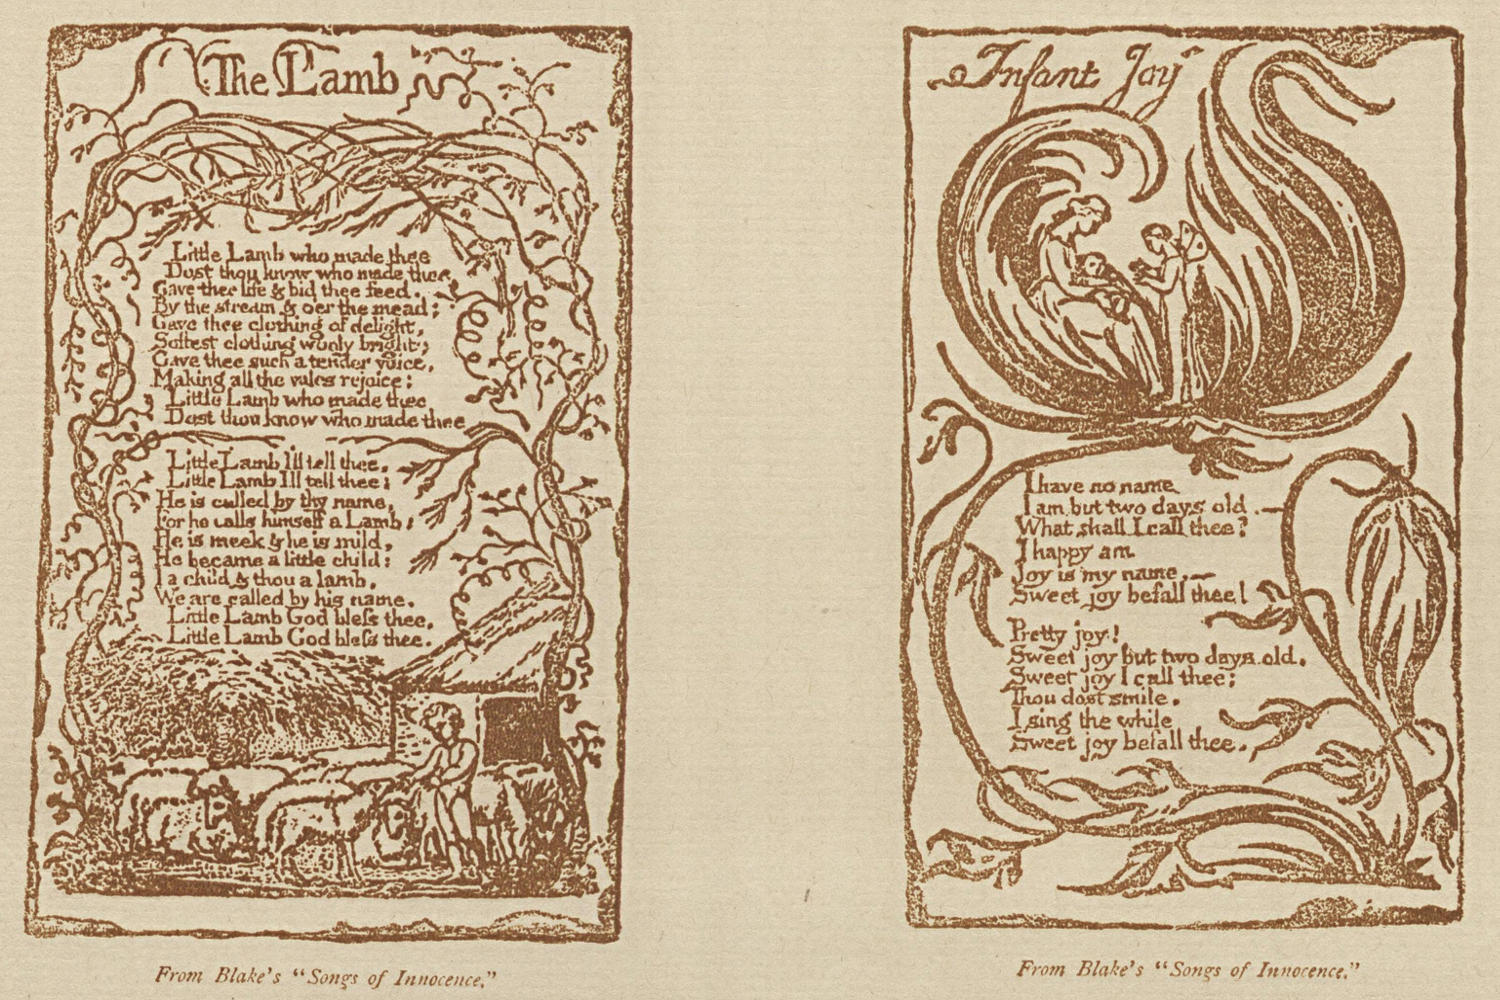 The Lamb
Little Lamb who made thee
Dost thou know who made thee
Gave thee life & bid thee feed.
By the stream & oer the mead;
Gave thee clothing of delight,
Softest clothing wooly bright;
Gave thee such a tender voice,
Making all the vales rejoice:
Little Lamb who made thee
Dost thou know who made thee
Little Lamb Ill tell thee,
Little Lamb Ill tell thee;
He is called by thy name,
For he calls himself a Lamb:
He is meek & he is mild,
He became a little child:
I a child & thou a lamb,
We are called by his name.
Little Lamb God bless thee,
Little Lamb God bless thee.
From Blake's "Songs of Innocence."
Infant Joy
I have no name
I am but two days old.
What shall I call thee?
I happy am
Joy is my name,
Sweet joy befall thee!
Pretty joy!
Sweet joy but two days old.
Sweet joy I call thee;
Thou dost smile.
I sing the while
Sweet joy befall thee.
From Blake's "Songs of Innocence."